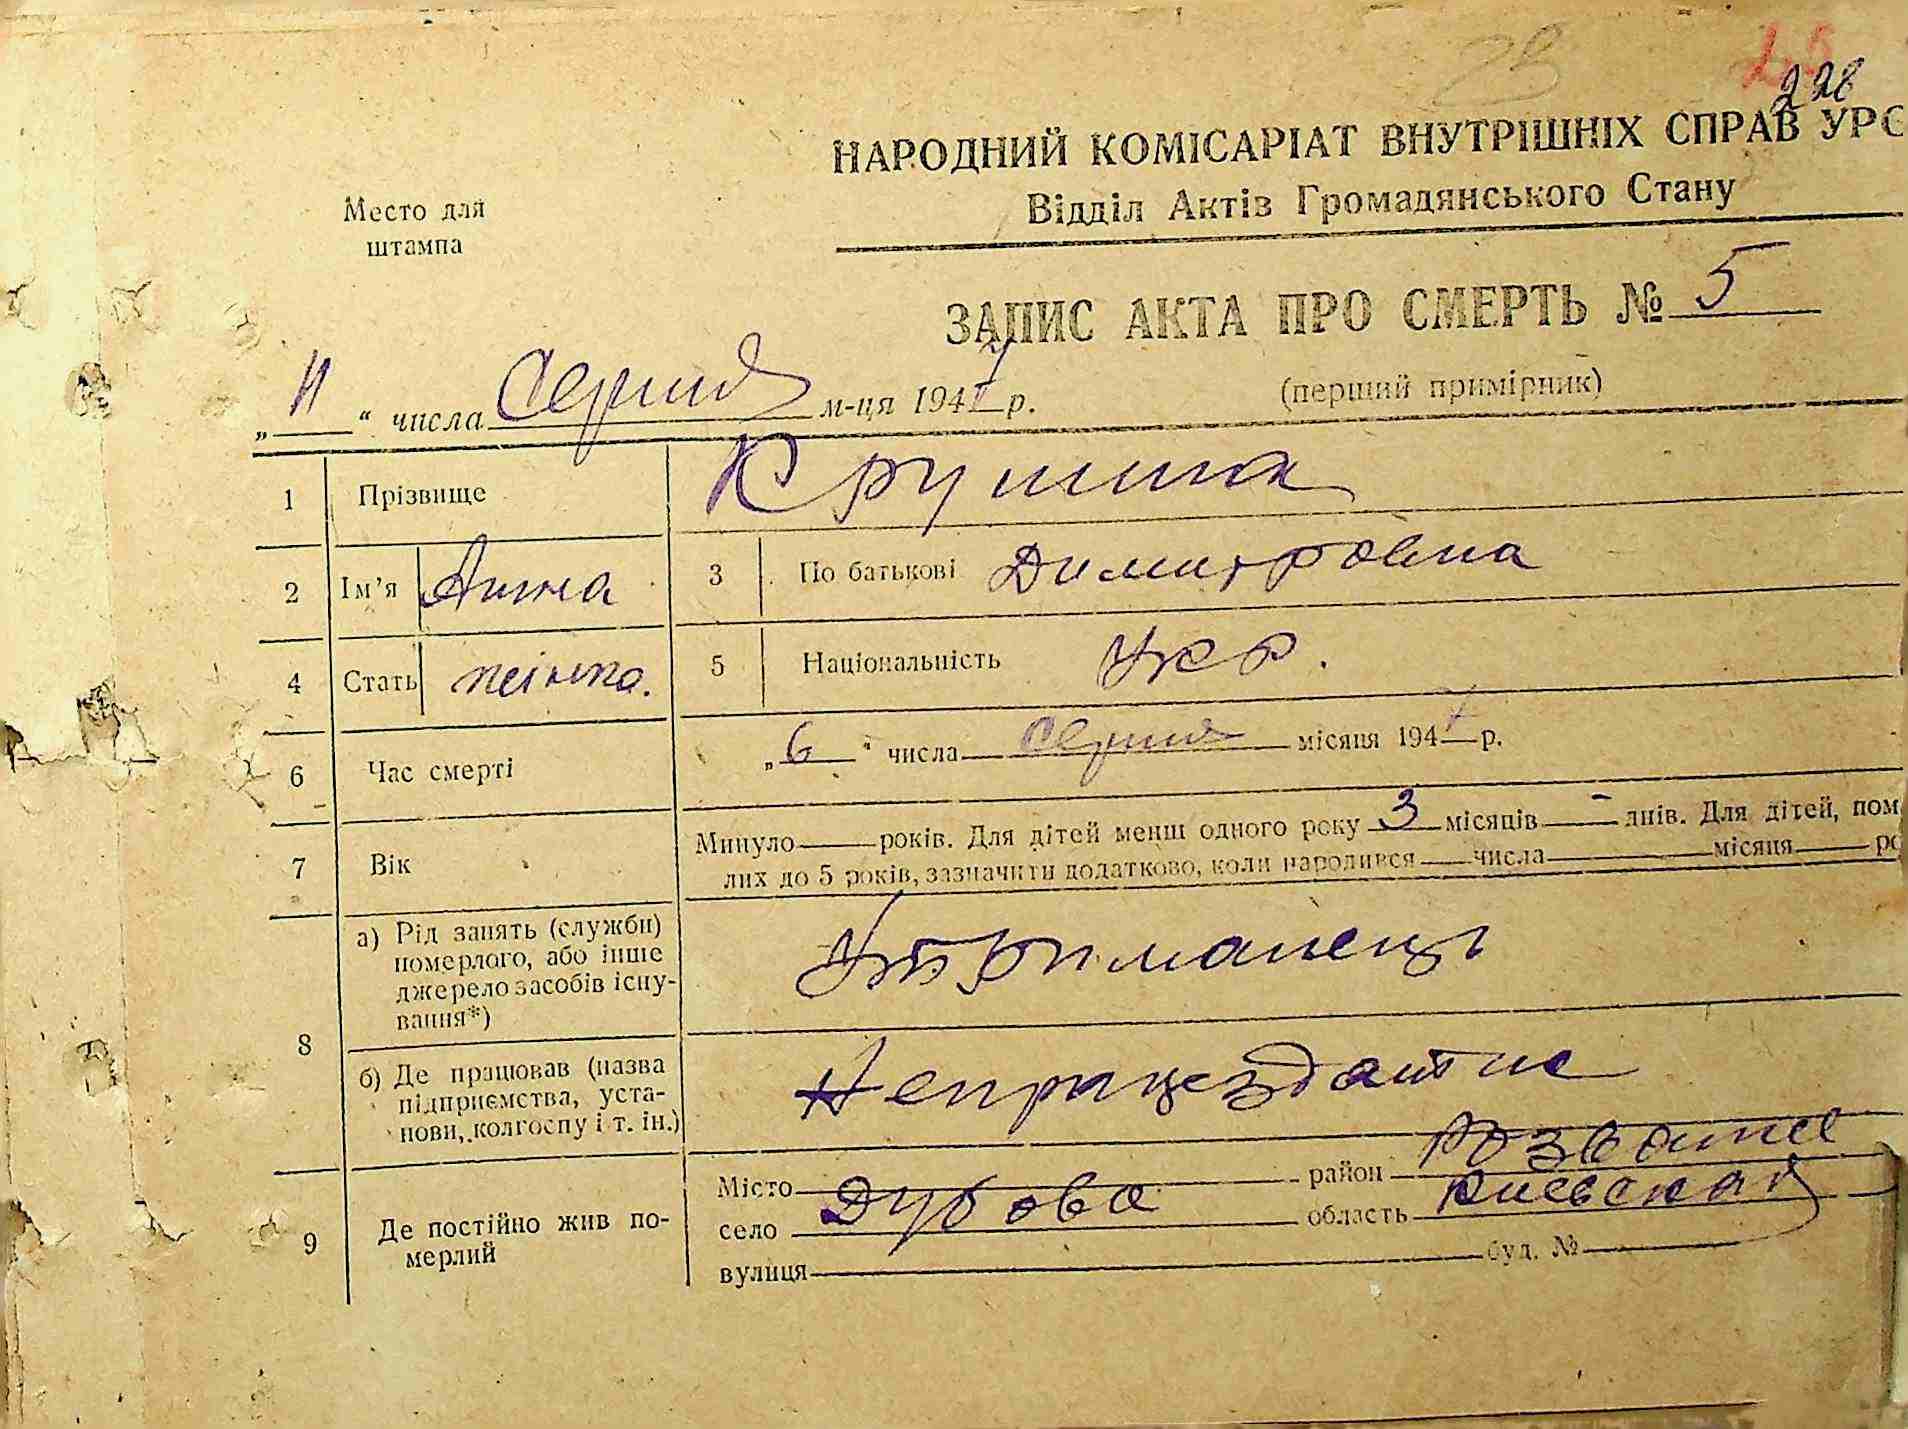 23
25
228
НАРОДНИЙ КОМІСАРІАТ ВНУТРІШНІХ СПРАВ УРС
Відділ Актів Громадянського Стану
Место для
штампа
ЗАПИС АКТА ПРО СМЕРТЬ № 5
(перший примірник)
„11“ числа Серпня м-ця 1947 р.
1 Прізвище
2 Ім'я Анна 3 По батькові Димитровна
4 Стать жінка. 5 Національність Укр.
6 Час смерті „6“ числа Серпня місяця 1947 р.
7 Вік Минуло — років. Для дітей менш одного року 3 місяців — днів. Для дітей, пом
лих до 5 років, зазначити додатково, коли народився — числа — місяця — ро
8 а) Рід занять (служби)
померлого, або інше
джерело засобів існу-
вання*)
Утриманець
б) Де працював (назва
підприємства, уста-
нови, колгоспу і т. ін.)
Непрацездатна
9 Де постійно жив по-
мерлий
Місто — район Розваж
село Дубова область Киевская
вулиця — буд. № —